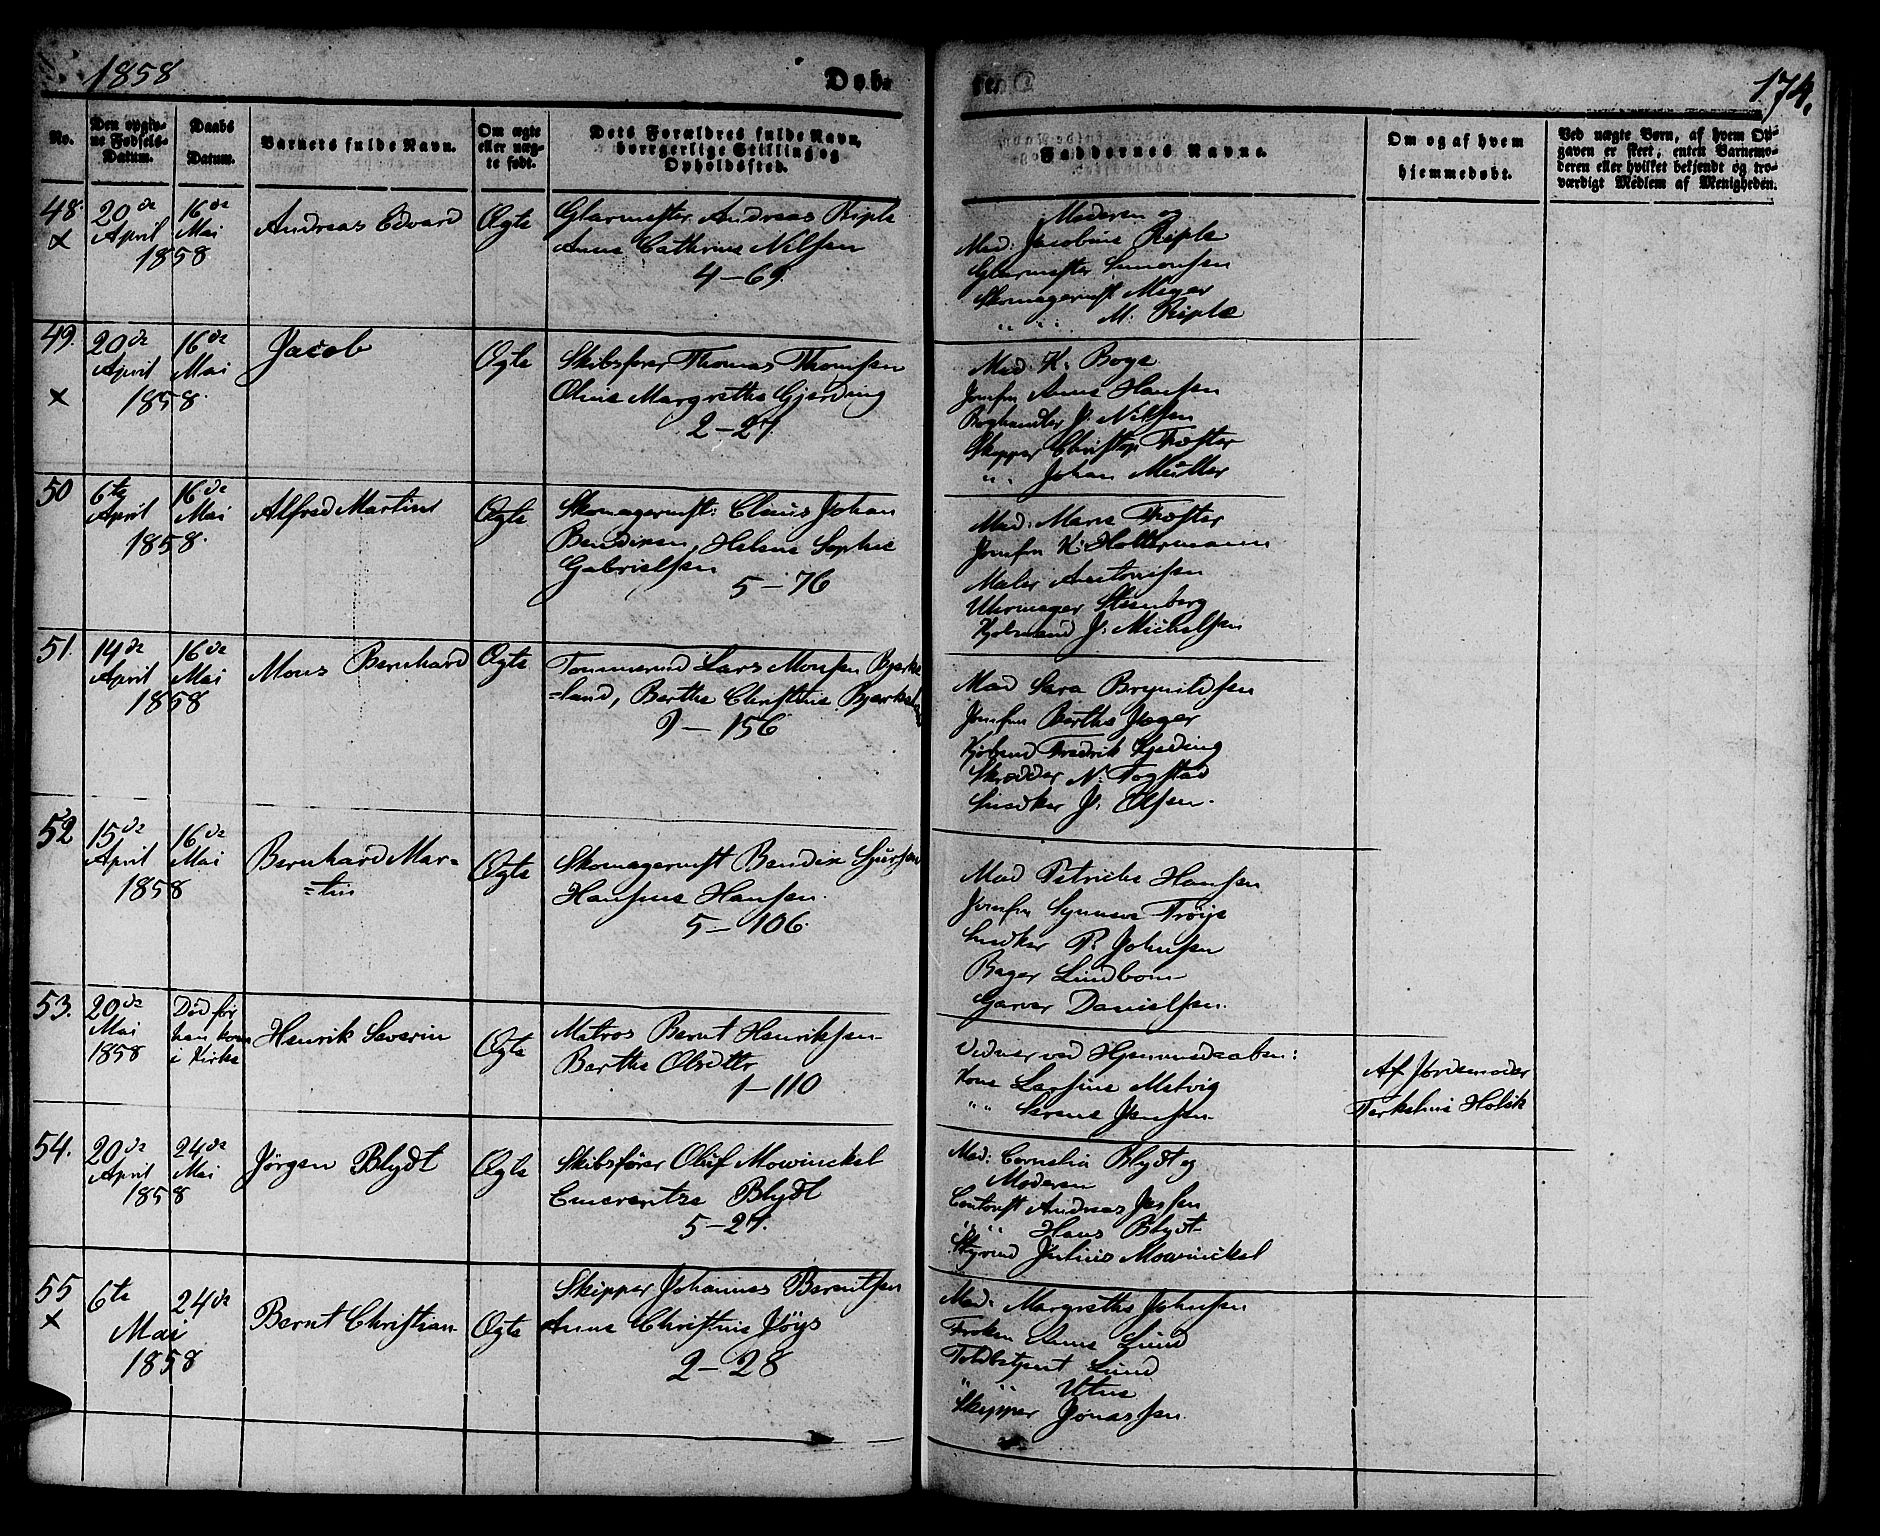 1858
Døb-
te.
174.
No.
Den opgiv-
ne Fødsels-
Datum.
Daabs
Datum.
Barnets fulde Navn.
Om ægte
eller uæg-
te født.
Dets Forældres fulde Navn,
borgerlige Stilling og
Opholdssted.
Faddernes Navne.
Om og af hvem
hjemmedøbt.
Ved uægte Børn, af hvem Op-
gaven er skeet, enten Barnemo-
deren eller hvilket bekjendt og tro-
værdigt Medlem af Menigheden.
48.
x
20de
April
16de
Mai
1858
Andreas Edvard
Ægte
Glarmester Andreas Riple
Anne Cathrine Nilsen
4-69.
Moderen og
Mad: Jacobine Riple
Glarmester Simonsen
Skomagermst Meyer
" " M: Riple
49.
x
20de
April
16de
Mai
1858.
Jacob
Ægte
Skibsfører Thomas Thomsen
Oline Margrethe Gjerding
2-27.
Mad K: Boge
Jomfru Anne Hansen
Boghandler J: Nilsen
Skipper Christop Troster
" Johan Müller
50
6te
April
16de
Mai
1858.
Alfred Martin
Ægte
Skomagermst: Claus Johan
Bendixen, Helene Sophie
Gabrielsen
5-76
Mad: Marie Troster
Jomfru K: Holtermann
Maler Antonisen
Uhrmager Steenberg
Kjøbmand J: Michelsen
51.
14de
April
16de
Mai
1858
Mons Bernhard
Ægte
Tømmermd Lars Monsen Bjerke
=land, Berthe Christine Bjerkeland
9-156
Mad Sara Brynildsen
Jomfru Berthe Jæger
Kjøbmd Fredrik Gjeding
Skrædder N: Togstad
Snedker J: Olsen.
52
15de
April
16de
Mai
1858
Bernhard Mar=
=tin
Ægte
Skomagermst Bendix Sjursen
Hansine Hansen.
5-106.
Mad Petricke Hansen
Jomfru Synneve Trøye
Snedker P. Johnsen
Bager Lindbom
Garver Danielsen.
53.
20de
Mai
1858
Død før
han kom
i Kirke
Henrik Severin
Ægte
Matros Bernt Henriksen
Berthe Olsdttr
1-110
Vidner ved Hjemmedaaben:
Kone Larsine Metvig
" " Serene Jensen
Af Jordemoder
Terkeline Holck
54.
20de
April
24de
Mai
1858
Jörgen Blydt
Ægte
Skibsfører Oluf Mowinckel
Emerentze Blydt
5-27.
Mad: Cornelia Blydt og
Moderen
Contorist Andreas Jessen
" " Hans Blydt
Styrmd Julius Mowinckel
55
x
6te
Mai
24de
1858
Bernt Christian
Ægte
Skipper Johannes Berentsen
Anne Christine Jøys
2-28
Mad. Margrethe Johnsen
Frøken Anne Lund
Toldbetjent Lund
" " Utne
Skipper Jonassen.